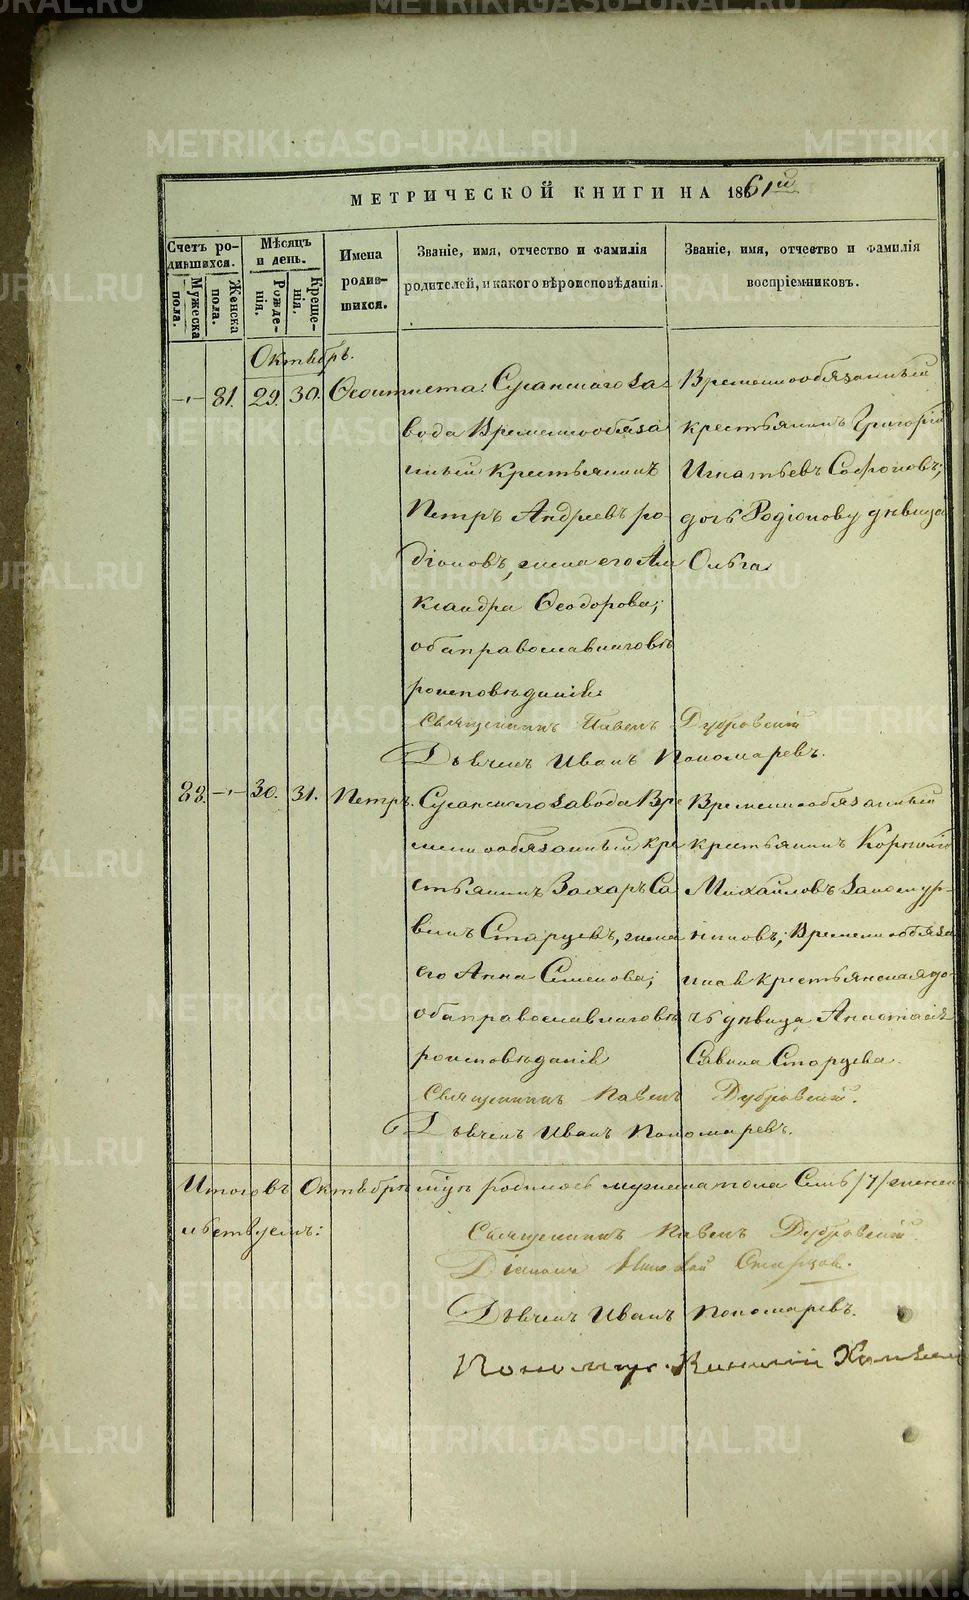 METRIKI.GASO-URAL.RU
МЕТРИЧЕСКОЙ КНИГИ НА 1861й
Счетъ родившихся.
Мужеска пола.
Женска пола.
Мѣсяцъ и день.
Рожденія.
Крещенія.
Имена родившихся.
Званіе, имя, отчество и фамилія родителей, и какого вѣроисповѣданія.
Званіе, имя, отчество и фамилія воспріемниковъ.
Октябрь.
81. 29. 30. Ѳеоктиста. Сусанскаго за-
вода Временнообяза
нный крестьянинъ
Петръ Андреевъ Ро-
діоновъ, жена его Але
ксандра Ѳеодорова;
оба православнаго вѣ
роисповѣданія.
Временнообязанный
крестьянинъ Григорій
Игнатьевъ Софоновъ;
дочь Родіонову дѣвица
Ольга.
Священникъ Павелъ Дубровскій
Дьячекъ Иванъ Пономаревъ.
88. 30. 31. Петръ. Сусанскаго завода Вре
меннообязанный кре
стьянинъ Захаръ Са
винъ Старцевъ, жена
его Анна Семенова;
оба православнаго вѣ
роисповѣданія
Временнообязанный
крестьянинъ Корнилій
Михайловъ
Временнообяза
ная крестьянская до-
чь дѣвица Анастасія
Савина Старцева.
Священникъ Павелъ Дубровскій.
Дьячекъ Иванъ Пономаревъ.
Итого въ Октябрѣ родилось мужеска пола Семь /7/ женска
Священникъ Павелъ Дубровскій.
Діаконъ Николай Старцов.
Дьячекъ Иванъ Пономаревъ.
Пономарь